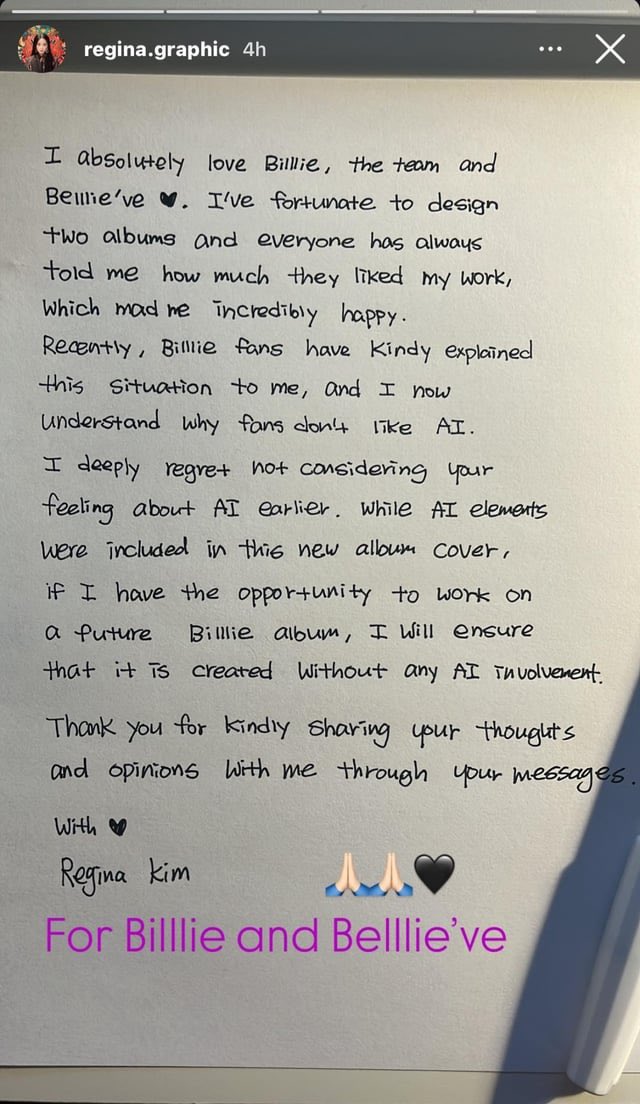 regina.graphic 4h
I absolutely love Billlie, the team and
Belllie've ♥. I've fortunate to design
two albums and everyone has always
told me how much they liked my work,
which mad me incredibly happy.
Recently, Billlie fans have kindy explained
this situation to me, and I now
understand why fans don't like AI.
I deeply regret not considering your
feeling about AI earlier. While AI elements
were included in this new album cover,
if I have the opportunity to work on
a future Billlie album, I will ensure
that it is created without any AI involvement.
Thank you for kindly sharing your thoughts
and opinions with me through your messages.
With ♥
Regina Kim
🙏🏻🙏🏻🖤
For Billlie and Belllie've